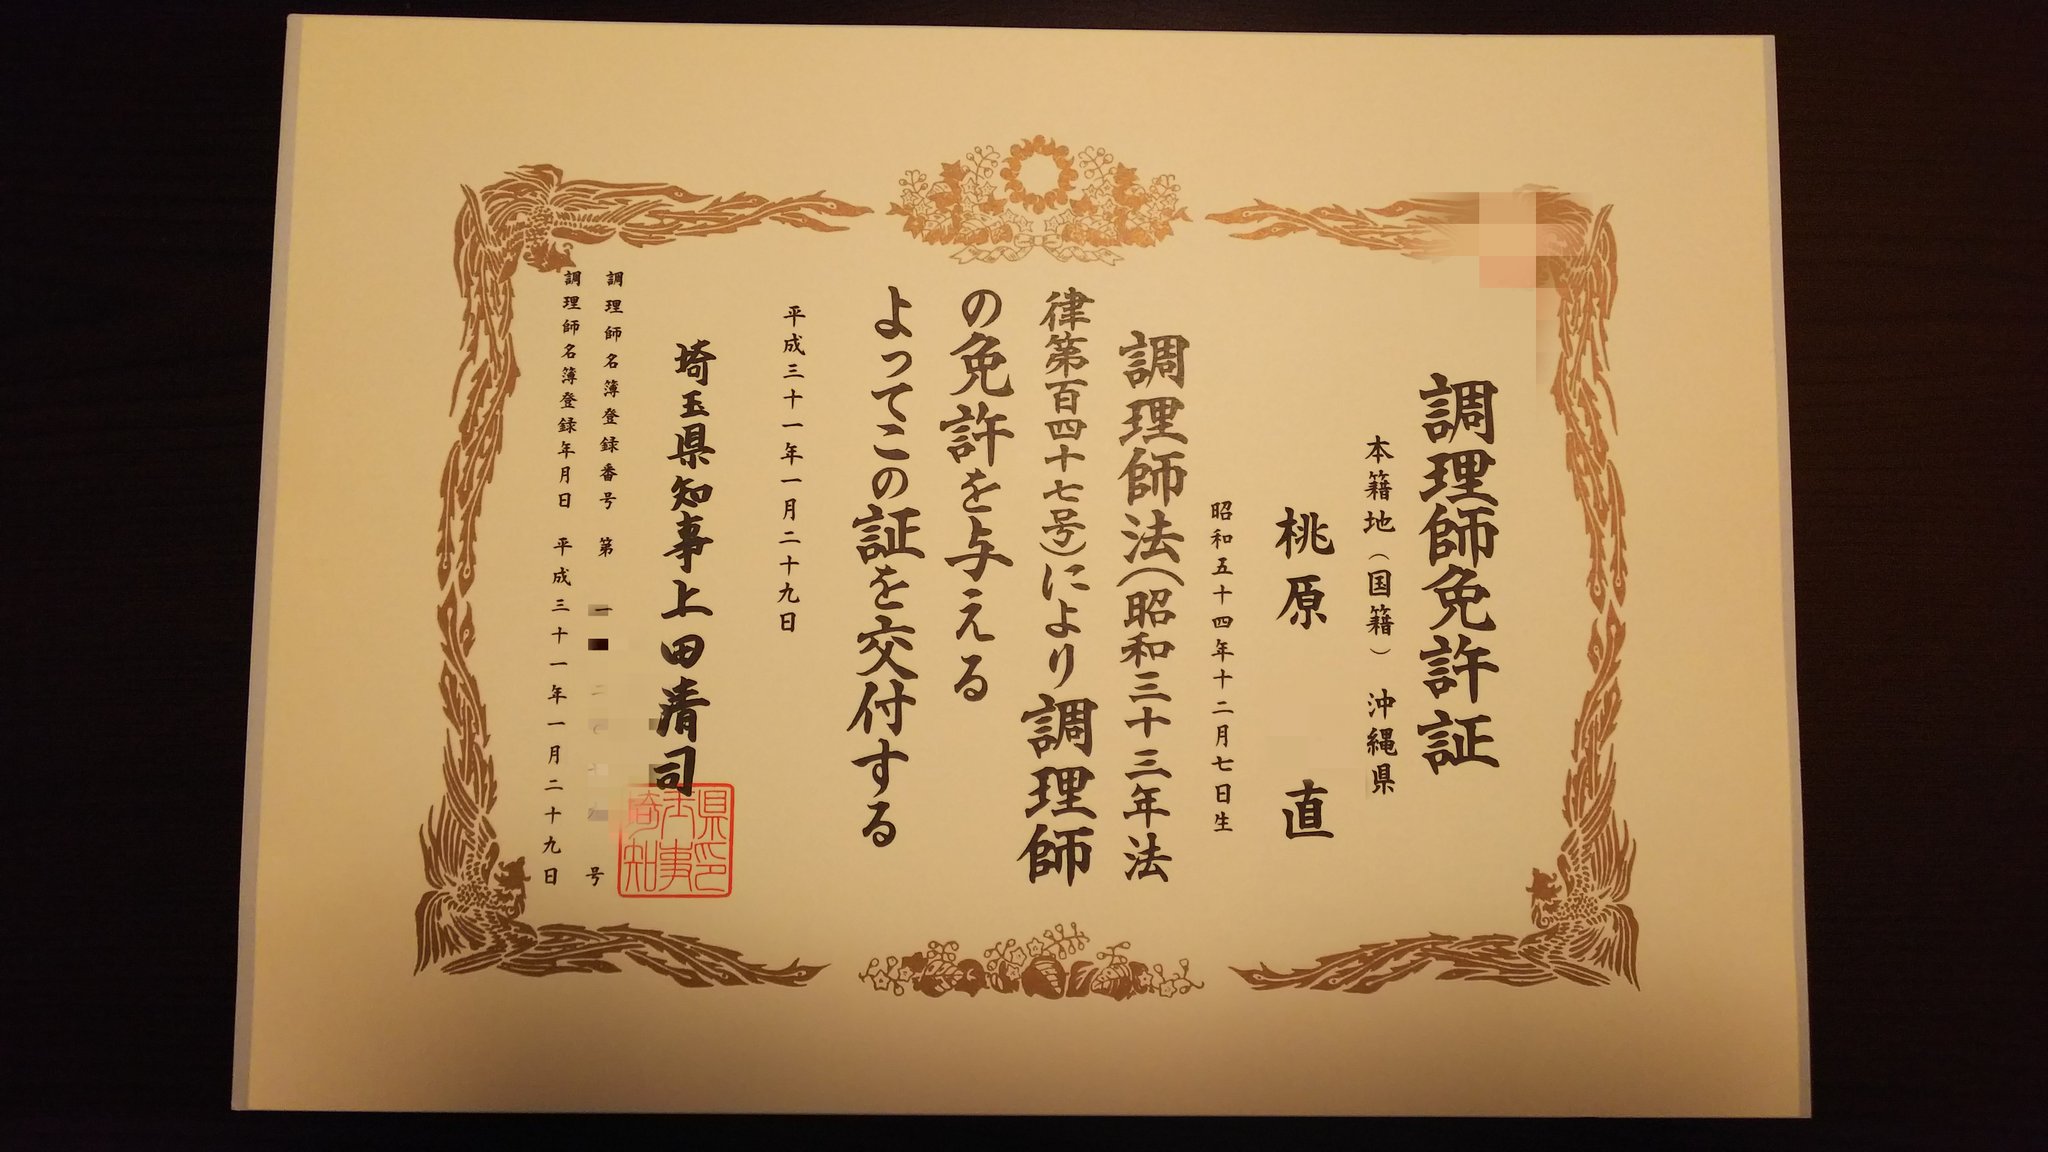 調理師免許証
本籍地（国籍） 沖縄県
桃原 直
昭和五十四年十二月七日生
調理師法（昭和三十三年法
律第百四十七号）により調理師
の免許を与える
よってこの証を交付する
平成三十一年一月二十九日
埼玉県知事上田清司
県印
玉事
埼知
調理師名簿登録番号 第 号
調理師名簿登録年月日 平成三十一年一月二十九日